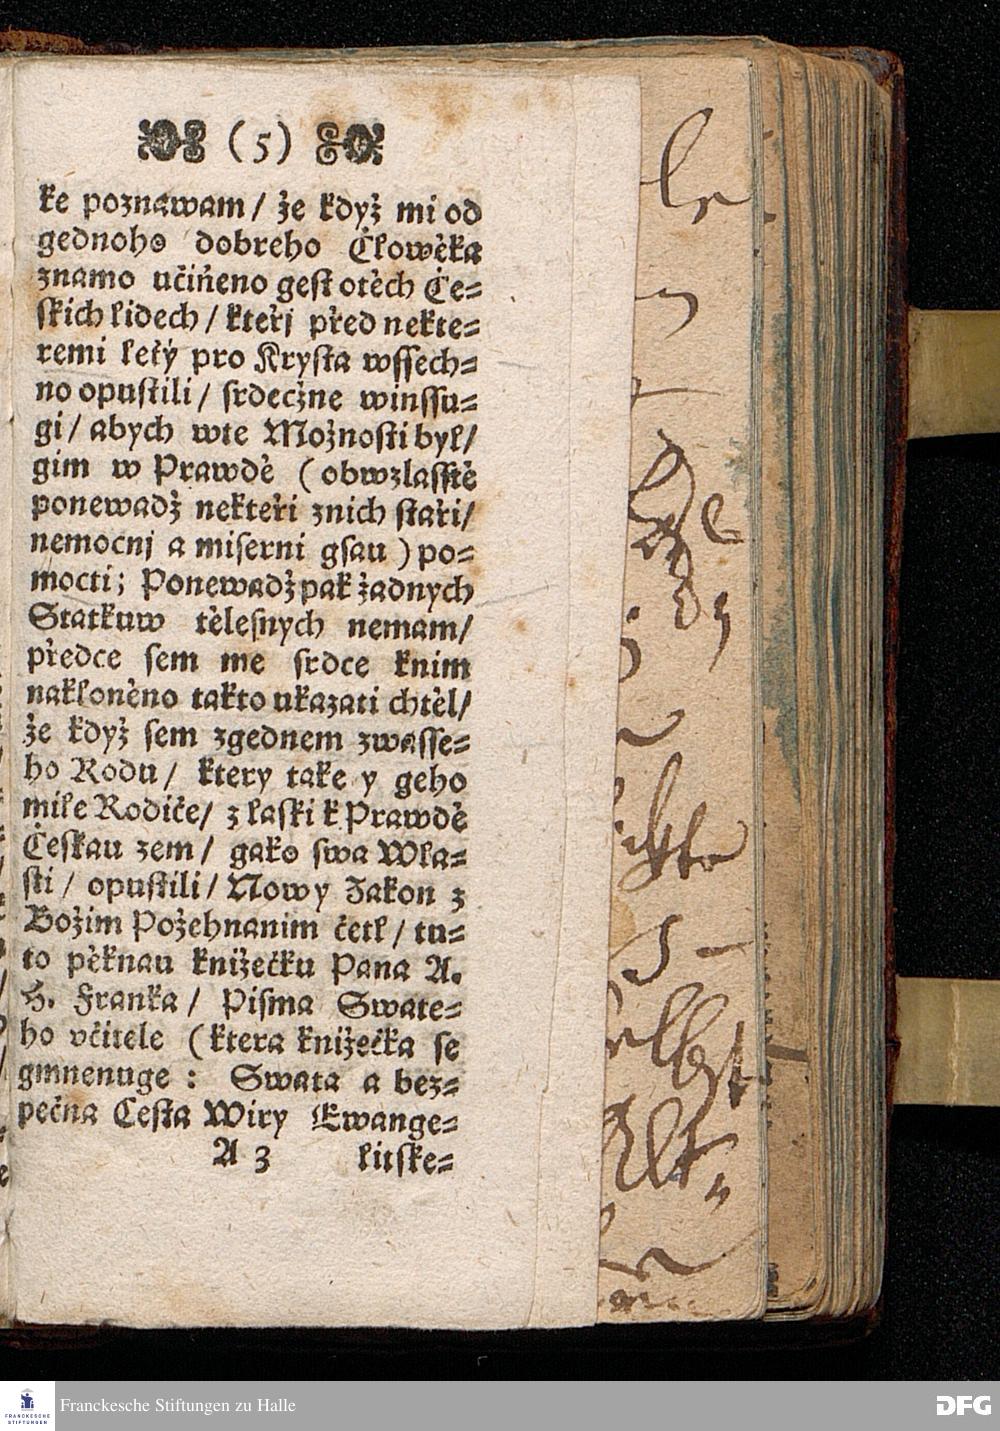 (5)
ke poznawam / že když mi od
gednoho dobreho Člowěka
znamo učiňeno gest otěch Če=
skich lidech / kteřj před nekte=
remi lety pro Krysta wssech=
no opustili / srdečžne winssu=
gi / abych wte Možnosti byl /
gim w Prawdě (obwzlasstě
ponewadž nekteři znich staři /
nemocnj a miserni gsau) po=
mocti; Ponewadž pak žadnych
Statkuw tělesnych nemam /
předce sem me srdce knim
nakloněno takto ukazati chtěl /
že když sem zgednem zwasse=
ho Rodu / ktery take y geho
mile Rodiče / z laski k Prawdě
Českau zem / gako swa Wla=
sti / opustili / Nowy Zakon z
Božim Požehnanim četl / tu=
to pěknau knižečku Pana A.
H. Franka / Pisma Swate=
ho včitele (ktera knižečka se
gmnenuge : Swata a bez=
pečna Cesta Wiry Ewange=
A 3 litske=
le
selbst
Alt=
Franckesche Stiftungen zu Halle
FRANCKESCHE
STIFTUNGEN
DFG